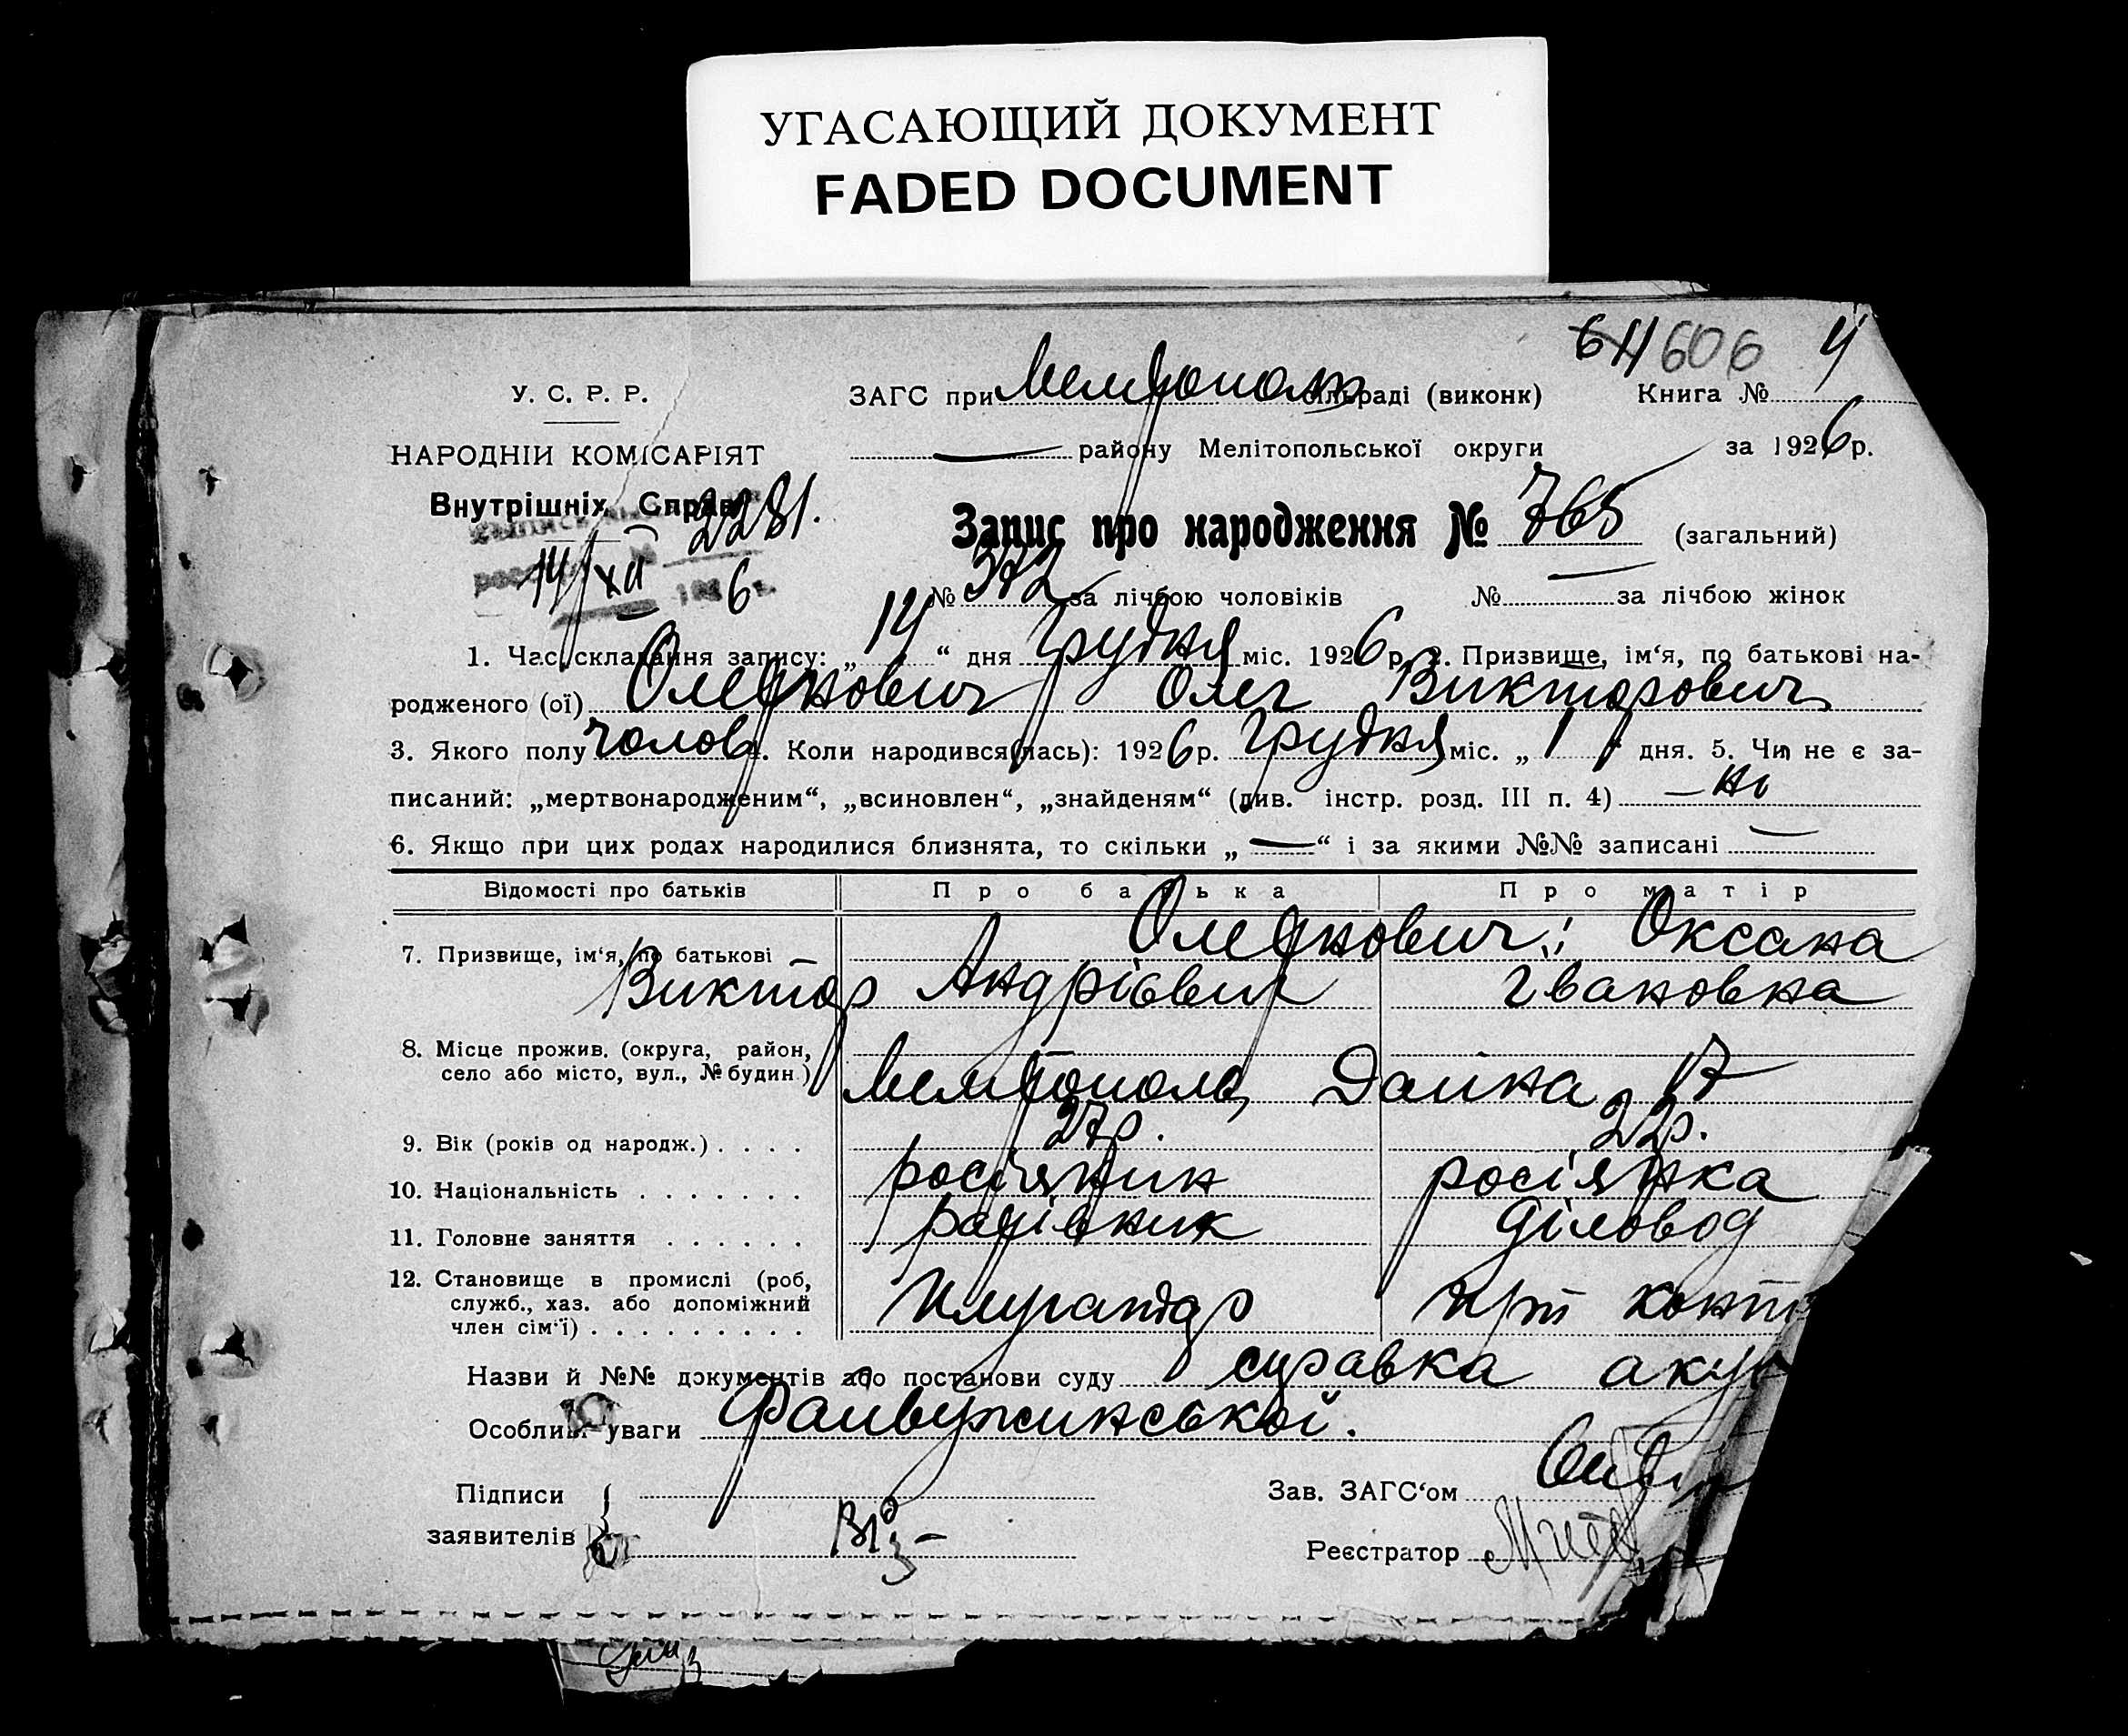 УГАСАЮЩИЙ ДОКУМЕНТ
FADED DOCUMENT
606 4
У. С. Р. Р.
ЗАГС при Мелітополь сільраді (виконк) Книга №
НАРОДНІЙ КОМІСАРІЯТ
— району Мелітопольської округи за 1926 р.
Внутрішніх Справ
2281.
14/XII 1926
Запис про народження № 765 (загальний)
№ 372 за лічбою чоловіків № — за лічбою жінок
1. Час складання запису: „14“ дня Грудня міс. 1926 р. 2. Призвище, ім‘я, по батькові на-
родженого (ої) Олег Викторович
3. Якого полу чолов 4. Коли народився(лась): 1926 р. Грудня міс. „1“ дня. 5. Чи не є за-
писаний: „мертвонародженим“, „всиновлен“, „знайденям“ (див. інстр. розд. III п. 4) — ні
6. Якщо при цих родах народилися близнята, то скільки „—“ і за якими №№ записані —
Відомості про батьків Про батька Про матір
7. Призвище, ім‘я, по батькові
Оксана
Виктор Андрієвич Івановна
8. Місце прожив. (округа, район,
село або місто, вул., № будин.)
Мелітополь, 17
9. Вік (років од народж.) . . . . 27 р. 22 р.
10. Національність . . . . . . . росіянин росіянка
11. Головне заняття . . . . . . діловод
12. Становище в промислі (роб,
служб., хаз. або допоміжний
член сім‘ї) . . . . . . . . .
Назви й №№ документів або постанови суду справка акуш
Особливі уваги
Підписи
заявителів
Зав. ЗАГС‘ом
Реєстратор